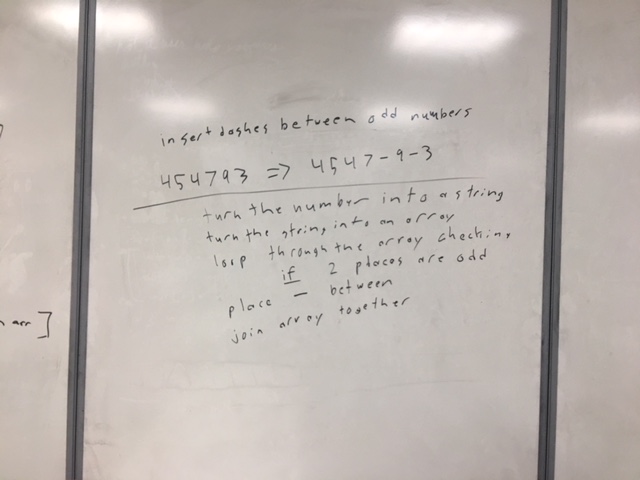 insert dashes between odd numbers
454793 => 4547-9-3
turn the number into a string
turn the string into an array
loop through the array checking,
if 2 places are odd
place - between
join array together
arr]